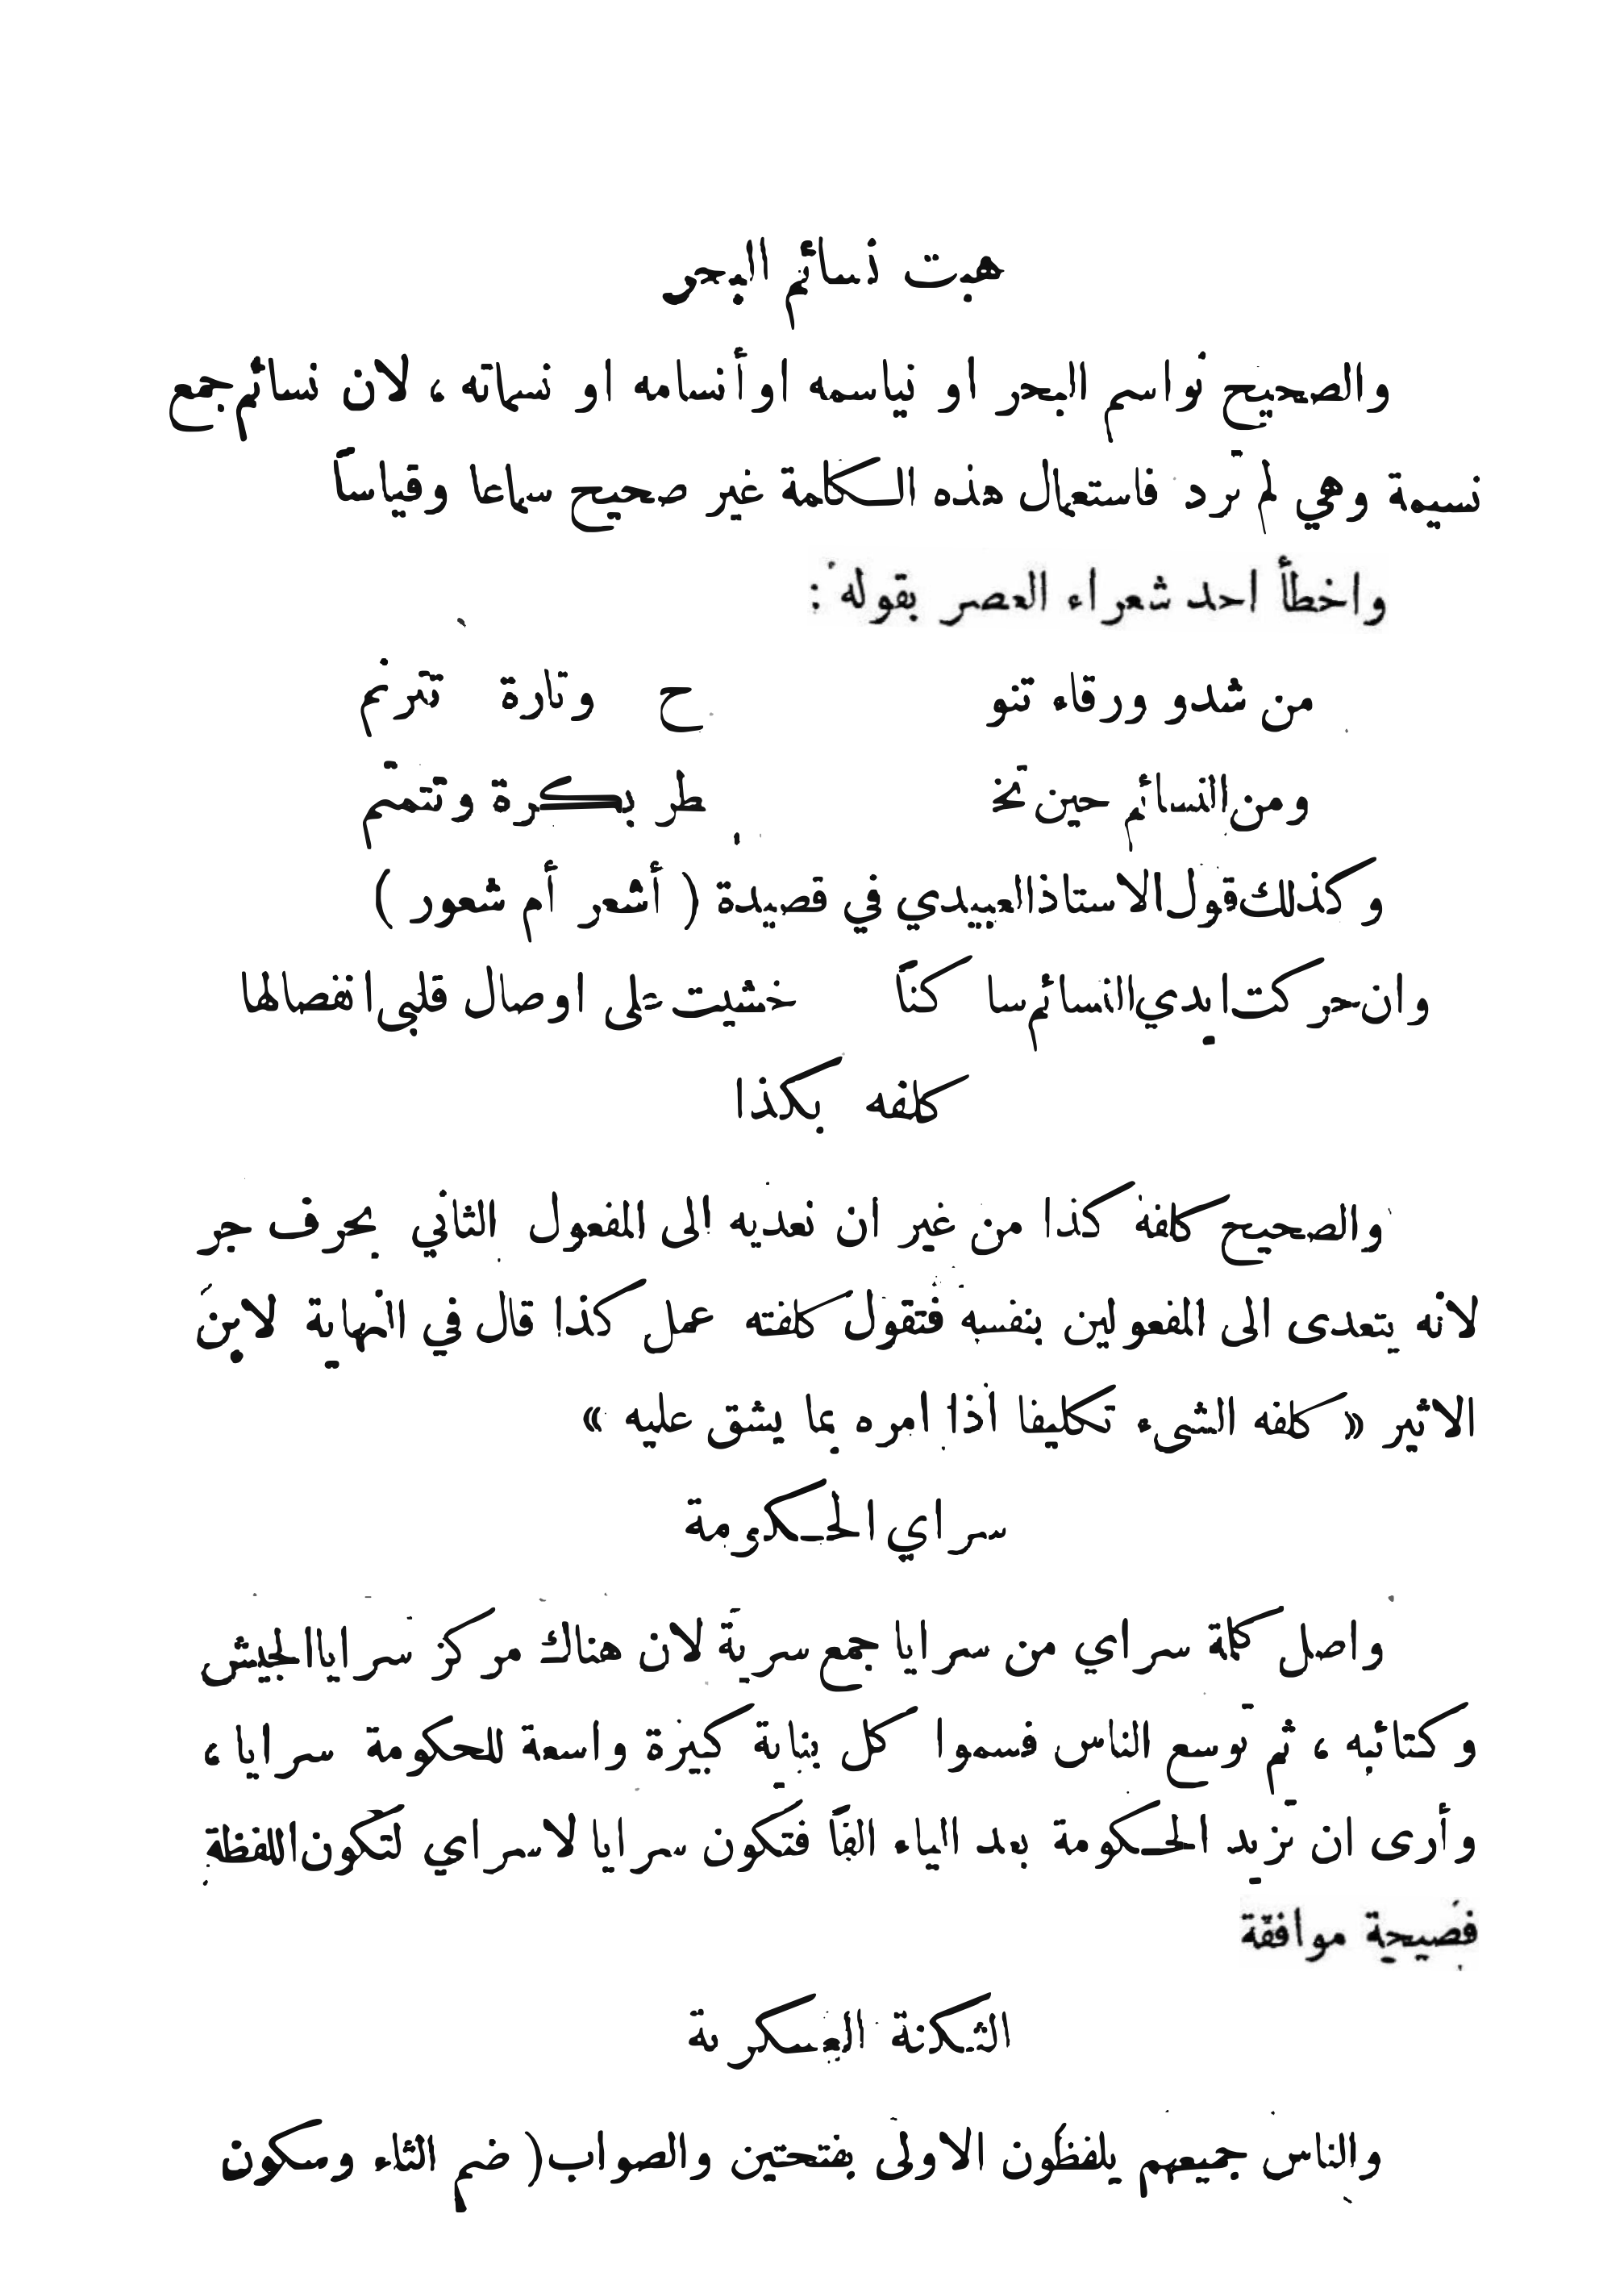 هبت نسائم البحر
والصحيح نواسم البحر او نياسمه او أنسامه او نسماته ، لان نسائم جمع
نسيمة وهي لم ترد فاستعمال هذه الكلمة غير صحيح سماعا وقياساً
واخطأ احد شعراء العصر بقوله :
من شدو ورقاء تنو ح وتارة تترنم
ومن النسائم حين تخ طر بكرة وتتمتم
وكذلك قول الاستاذ العبيدي في قصيدة ( أشعر أم شعور )
وان حركت ايدي النسائم ساكناً خشيت على اوصال قلبي انفصالها
كلفه بكذا
والصحيح كلفه كذا من غير ان نعديه الى المفعول الثاني بحرف جر
لانه يتعدى الى المفعولين بنفسه فتقول كلفته عمل كذا قال في النهاية لابن
الاثير « كلفه الشيء تكليفا اذا امره بما يشق عليه »
سراي الحكومة
واصل كلمة سراي من سرايا جمع سرية لان هناك مركز سرايا الجيش
وكتائبه ، ثم توسع الناس فسموا كل بناية كبيرة واسعة للحكومة سرايا ،
وأرى ان تزيد الحكومة بعد الياء الفاً فتكون سرايا لا سراي لتكون اللفظة
فصيحة موافقة
الثكنة العسكرية
والناس جميعهم يلفظون الاولى بفتحتين والصواب ( ضم الثاء وسكون